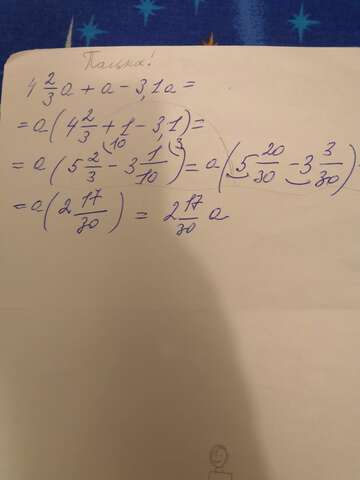 Пацика!
4 2/3 a + a - 3,1a =
= a ( 4 2/3 + 1 - 3,1 ) =
= a ( 5 2/3 (10 - 3 1/10 (3 ) = a ( 5 20/30 - 3 3/30 ) =
= a ( 2 17/30 ) = 2 17/30 a